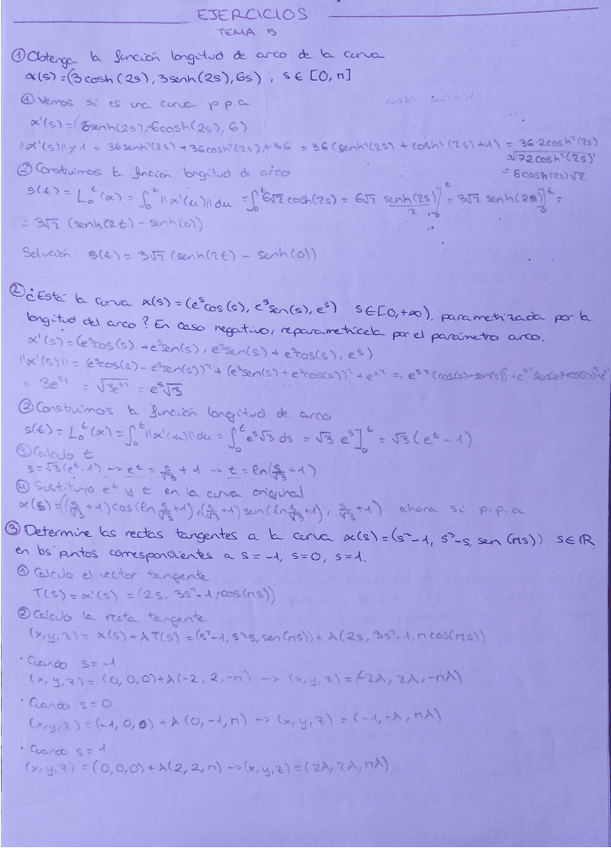 EJERCICIOS
TEMA 5
① Obtenga la función longitud de arco de la curva
α(s)=(3cosh(2s), 3senh(2s), 6s), s∈[0,π]
① Vemos si es una curva p.p.a
α'(s)=(6senh(2s), 6cosh(2s), 6)
||α'(s)|| ≠ 1 = 36senh²(2s)+36cosh²(2s)+36 = 36(senh²(2s)+cosh²(2s)+1) = 36·2cosh²(2s)
√72cosh²(2s)
= 6cosh(2s)√2
② Construimos la función longitud de arco
s(t) = L₀ᵗ(α) = ∫₀ᵗ ||α'(u)|| du = ∫₀ᵗ 6√2 cosh(2s) = 6√2 senh(2s)/2 ]₀ᵗ = 3√2 senh(2s)]₀ᵗ =
= 3√2 (senh(2t) - senh(0))
Solución: s(t) = 3√2 (senh(2t) - senh(0))
② ¿Está la curva α(s)=(eˢcos(s), eˢsen(s), eˢ) s∈[0,+∞), parametrizada por la
longitud del arco? En caso negativo, reparametrícela por el parámetro arco.
α'(s)=(eˢcos(s) - eˢsen(s), eˢsen(s) + eˢcos(s), eˢ)
||α'(s)|| = (eˢcos(s) - eˢsen(s))² + (eˢsen(s) + eˢcos(s))² + eˢ²
= 3eˢ² = √3eˢ² = eˢ√3
② Construimos la función longitud de arco
s(t) = L₀ᵗ(α) = ∫₀ᵗ ||α'(u)|| du = ∫₀ᵗ eˢ√3 ds = √3 eˢ]₀ᵗ = √3(eᵗ - 1)
③ Calculo t
s = √3(eᵗ - 1) → eᵗ = s/√3 + 1 → t = ln(s/√3 + 1)
④ Sustituyo eᵗ y t en la curva original
α(s) = ((s/√3 + 1) cos(ln s/√3 + 1), (s/√3 + 1) sen(ln s/√3 + 1), s/√3 + 1) ahora si p.p.a
③ Determine las rectas tangentes a la curva α(s)=(s²-1, s³-s, sen(πs)) s∈ℝ
en los puntos correspondientes a s=-1, s=0, s=1.
① Calculo el vector tangente
T(s) = α'(s) = (2s, 3s²-1, πcos(πs))
② Calculo la recta tangente
(x,y,z) = α(s) + λT(s) = (s²-1, s³-s, sen(πs)) + λ(2s, 3s²-1, πcos(πs))
· Cuando s=-1
(x,y,z) = (0,0,0) + λ(-2, 2, -π) → (x,y,z) = (-2λ, 2λ, -πλ)
· Cuando s=0
(x,y,z) = (-1,0,0) + λ(0,-1,π) → (x,y,z) = (-1,-λ, πλ)
· Cuando s=1
(x,y,z) = (0,0,0) + λ(2,2,π) → (x,y,z) = (2λ, 2λ, πλ)